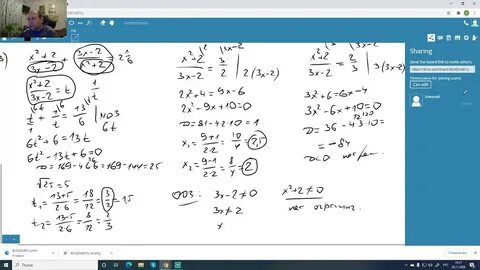 3)
x²+2/3x-2 + 3x-2/x²+2 = 2 1/6
x²+2/3x-2 = t
t/1 + 1/t = 13/6 | НОЗ 6t
6t²+6=13t
6t²-13t+6=0
D=169-4·6·6=169-144=25
√25=5
t₁=13+5/2·6=18/12=3/2=1,5
t₂=13-5/2·6=8/12=2/3
x²+2/3x-2=3/2 | 2(3x-2)
2x²+4=9x-6
2x²-9x+10=0
D=81-4·2·10=1
x₁=9+1/2·2=10/4=2,5
x₂=9-1/2·2=8/4=2
x²+2/3x-2=2/3 | 3(3x-2)
3x²+6=6x-4
3x²-6x+10=0
D=36-4·3·10=
=-84
D<0
ОДЗ: 3x-2≠0
3x≠2
x
x²+2≠0
нет огранич.
Sharing
Send the board link to invite others
Permissions for joining users:
Can edit